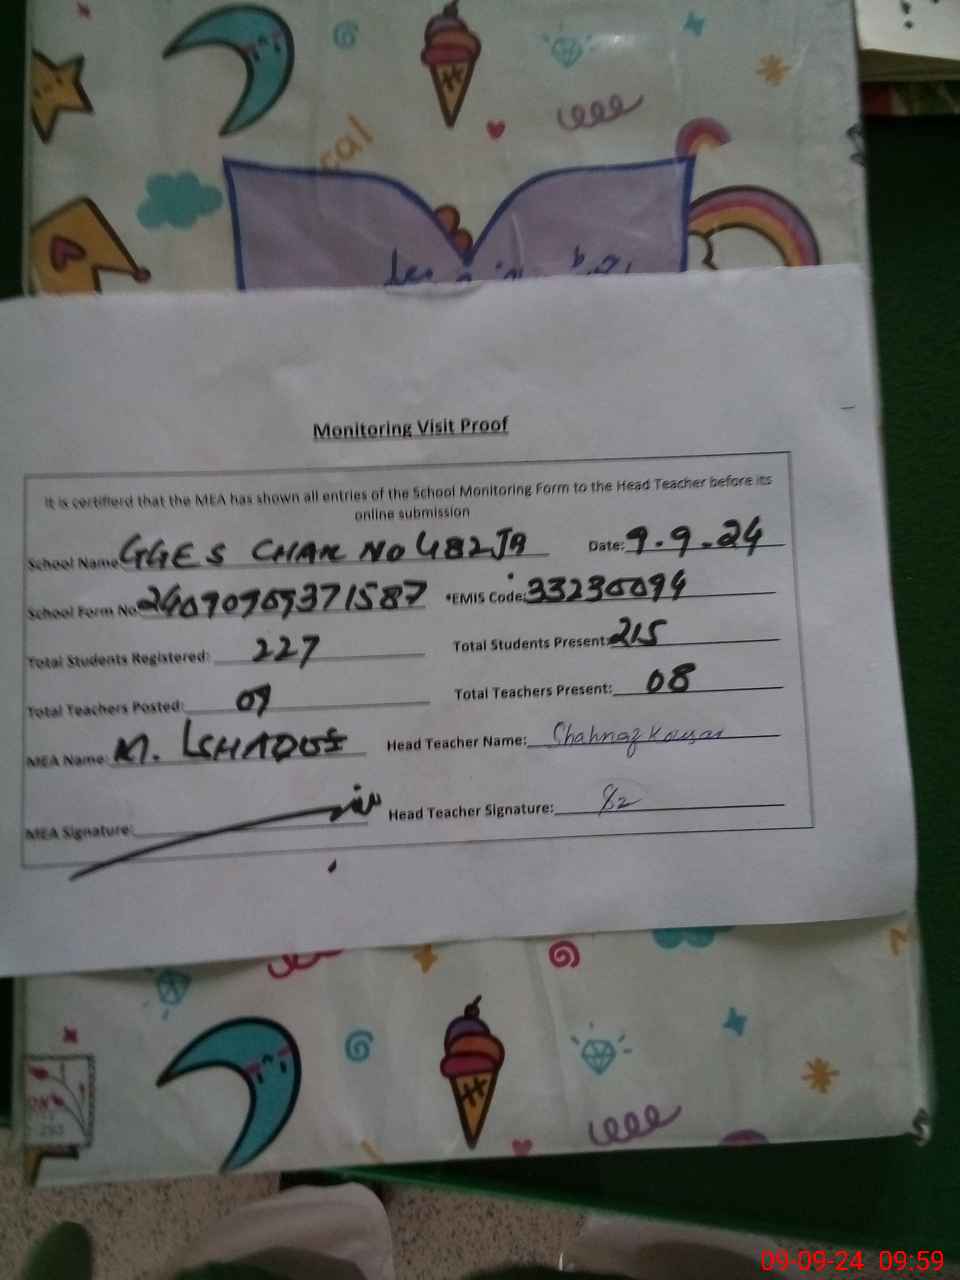 cal
Monitoring Visit Proof
It is certifierd that the MEA has shown all entries of the School Monitoring Form to the Head Teacher before its
online submission
School Name GGES CHAK NO 482JB Date: 9.9.24
School Form No 24090909371587 *EMIS Code: 33230094
Total Students Registered: 227 Total Students Present: 215
Total Teachers Posted: 09 Total Teachers Present: 08
MEA Name: M. Head Teacher Name: Shahnaz Kousar
MEA Signature: Head Teacher Signature:
09-09-24 09:59